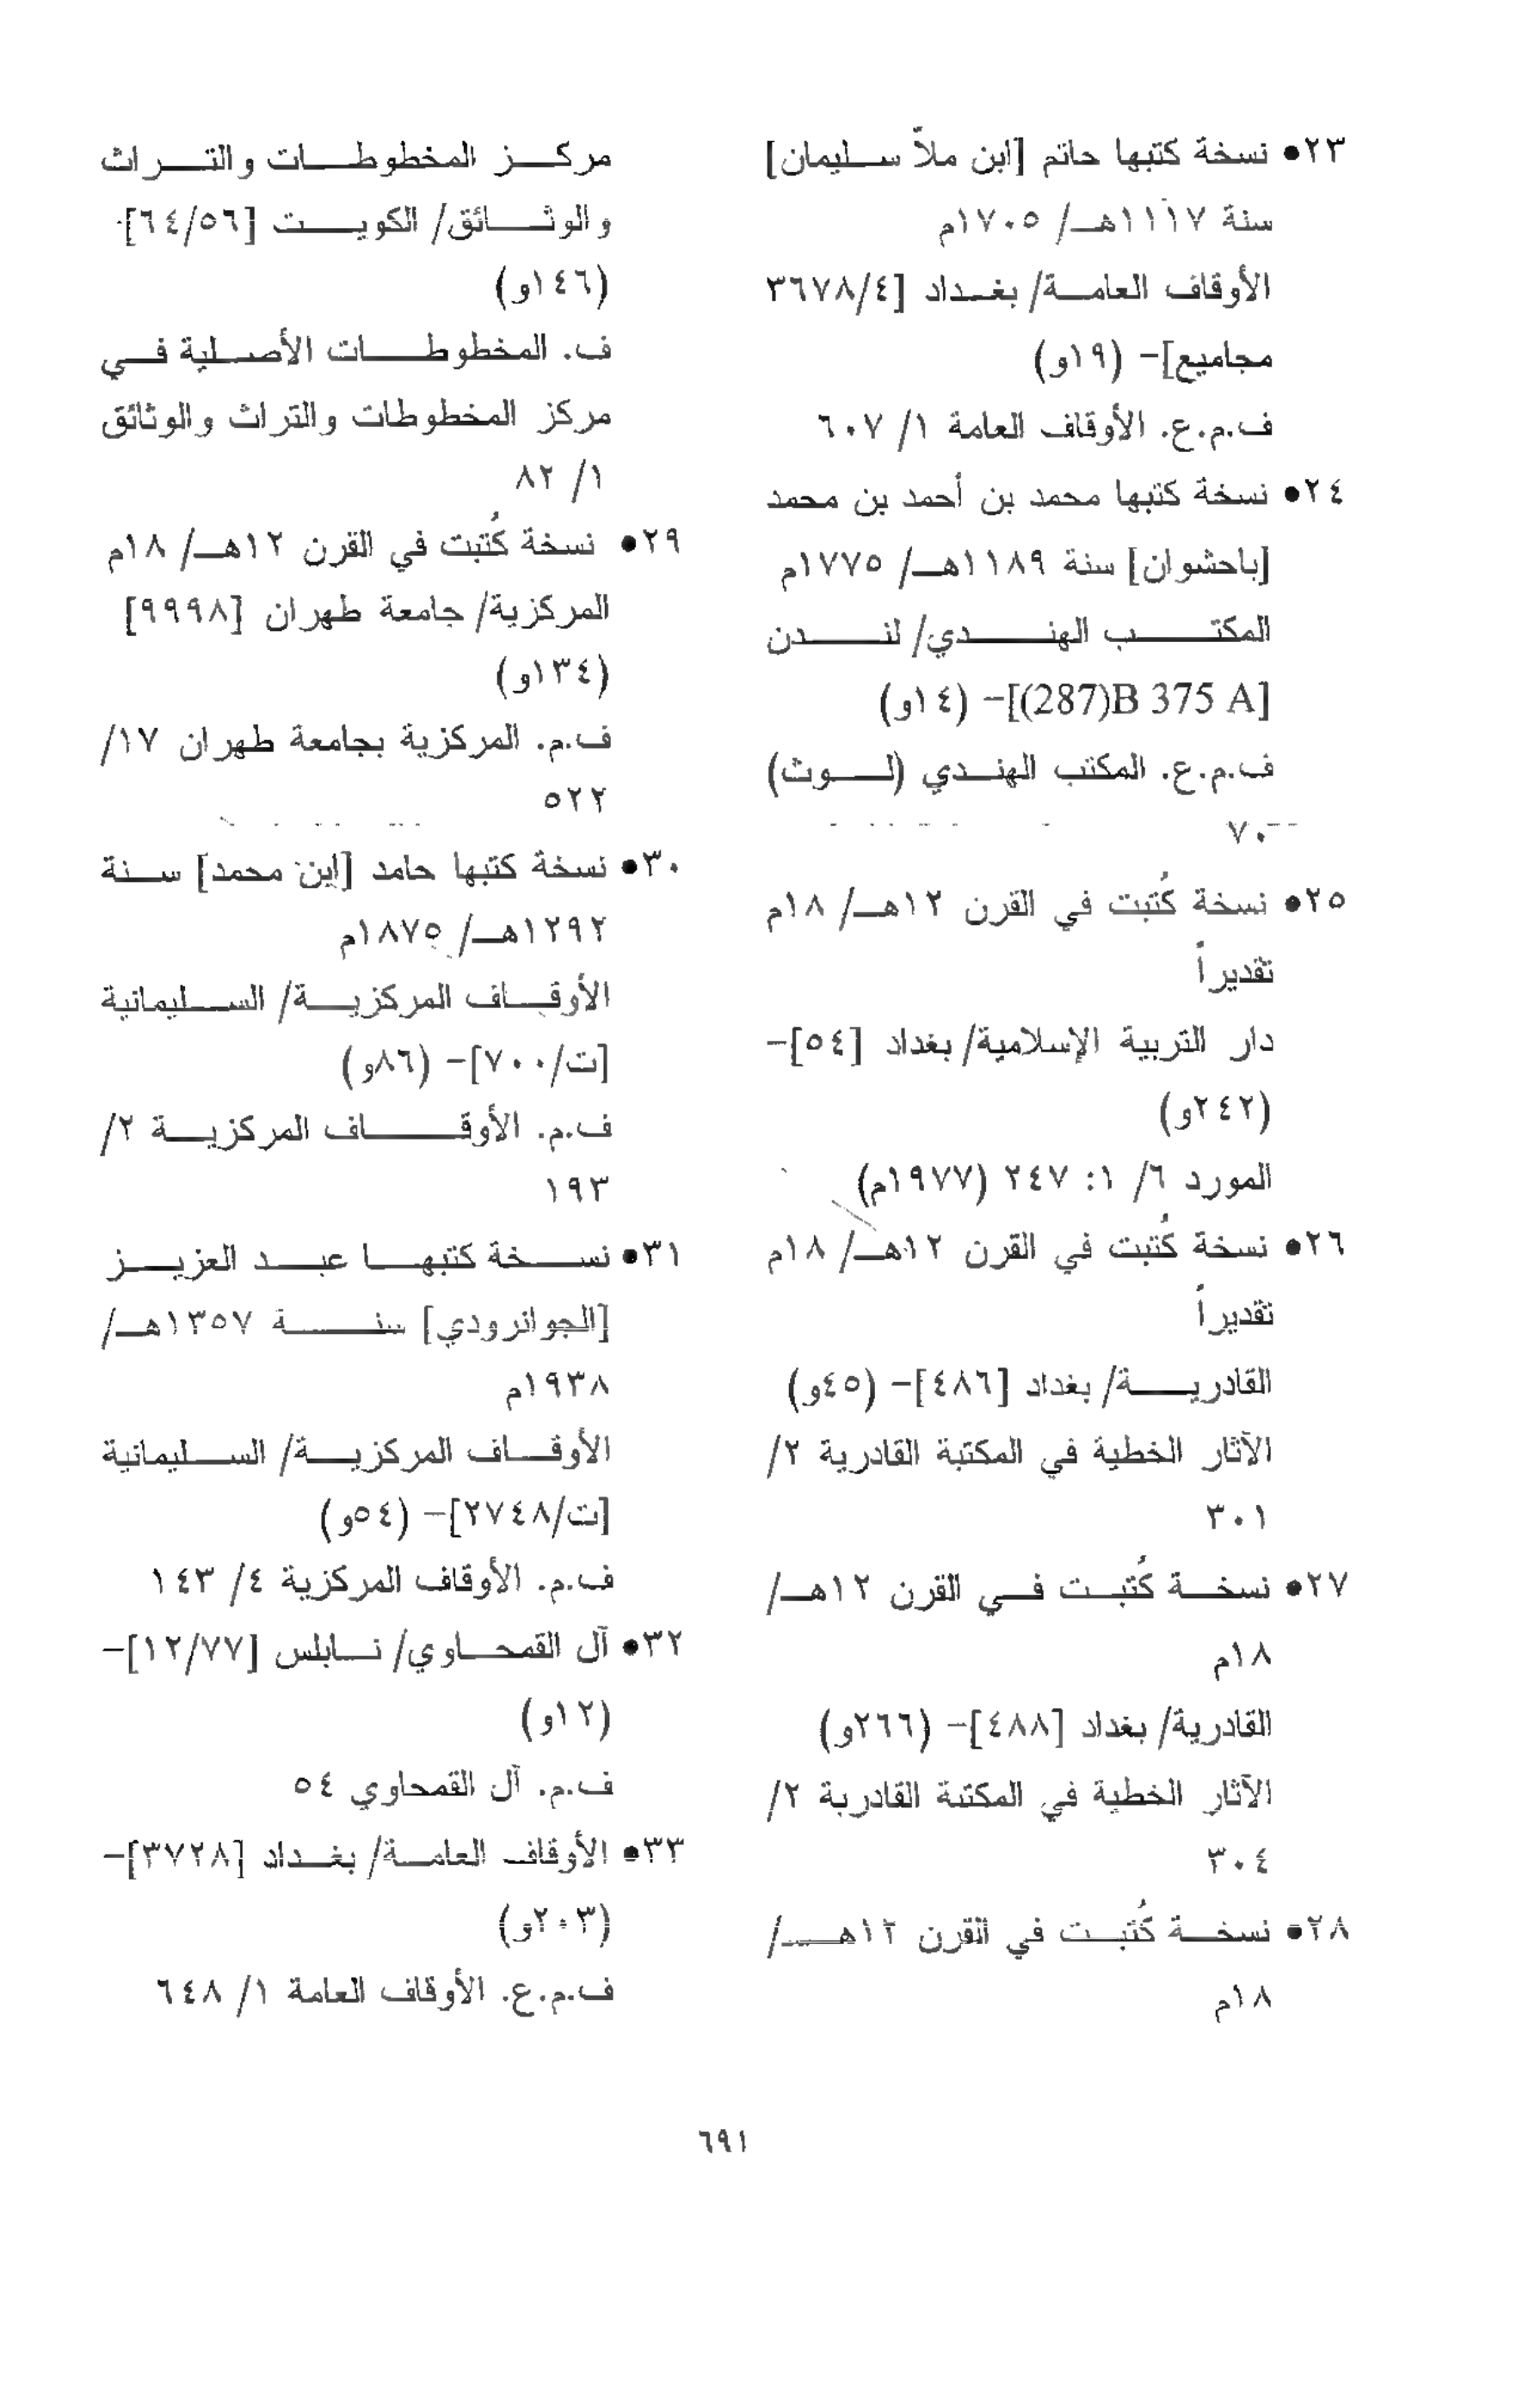 ٢٣● نسخة كتبها حاتم [ابن ملاّ سليمان]
سنة ١١١٧هـ/ ١٧٠٥م
الأوقاف العامة/ بغداد [٣٦٧٨/٤
مجاميع]- (١٩و)
ف.م.ع. الأوقاف العامة ١/ ٦٠٧
٢٤● نسخة كتبها محمد بن أحمد بن محمد
[باحشوان] سنة ١١٨٩هـ/ ١٧٧٥م
المكتب الهندي/ لندن
[(287)B 375 A]- (١٤و)
ف.م.ع. المكتب الهندي (لوث)
٧٠
٢٥● نسخة كُتبت في القرن ١٢هـ/ ١٨م
تقديراً
دار التربية الإسلامية/ بغداد [٥٤]-
(٢٤٢و)
المورد ٦/ ١: ٢٤٧ (١٩٧٧م)
٢٦● نسخة كُتبت في القرن ١٢هـ/ ١٨م
تقديراً
القادرية/ بغداد [٤٨٦]- (٤٥و)
الآثار الخطية في المكتبة القادرية ٢/
٣٠١
٢٧● نسخة كُتبت في القرن ١٢هـ/
١٨م
القادرية/ بغداد [٤٨٨]- (٢٦٦و)
الآثار الخطية في المكتبة القادرية ٢/
٣٠٤
٢٨● نسخة كُتبت في القرن ١٢هـ/
١٨م
مركز المخطوطات والتراث
والوثائق/ الكويت [٦٤/٥٦]-
(١٤٦و)
ف. المخطوطات الأصلية في
مركز المخطوطات والتراث والوثائق
١/ ٨٢
٢٩● نسخة كُتبت في القرن ١٢هـ/ ١٨م
المركزية/ جامعة طهران [٩٩٩٨]
(١٣٤و)
ف.م. المركزية بجامعة طهران ١٧/
٥٢٢
٣٠● نسخة كتبها حامد [ابن محمد] سنة
١٢٩٢هـ/ ١٨٧٥م
الأوقاف المركزية/ السليمانية
[ت/٧٠٠]- (٨٦و)
ف.م. الأوقاف المركزية ٢/
١٩٣
٣١● نسخة كتبها عبد العزيز
[الجوانرودي] سنة ١٣٥٧هـ/
١٩٣٨م
الأوقاف المركزية/ السليمانية
[ت/٢٧٤٨]- (٥٤و)
ف.م. الأوقاف المركزية ٤/ ١٤٣
٣٢● آل القمحاوي/ نابلس [١٢/٧٧]-
(١٢و)
ف.م. آل القمحاوي ٥٤
٣٣● الأوقاف العامة/ بغداد [٣٧٢٨]-
(٢٠٣و)
ف.م.ع. الأوقاف العامة ١/ ٦٤٨
٦٩١